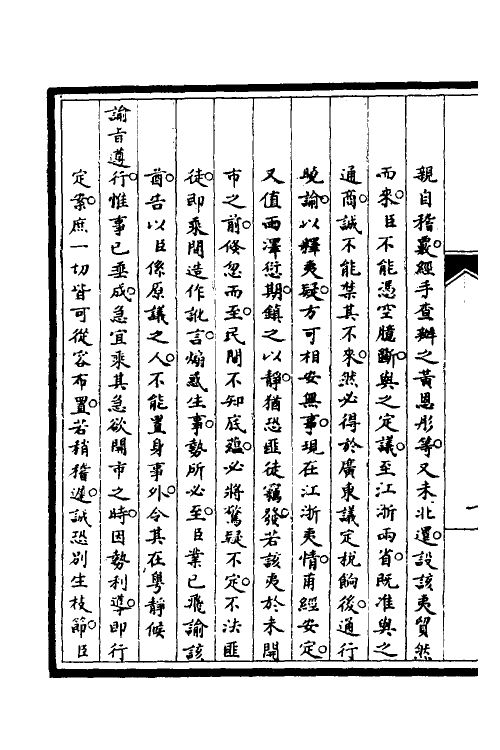 親自稽覈。經手查辦之黃恩彤等。又未北還。設該夷貿然
而來。臣不能憑空臆斷。與之定議。至江浙兩省。既准與之
通商。誠不能禁其不來。然必得於廣東議定稅餉後。通行
曉諭。以釋夷疑。方可相安無事。現在江浙夷情。甫經安定。
又值雨澤愆期。鎮之以靜。猶恐匪徒竊發。若該夷於未開
市之前。倏忽而至。民間不知底蘊。必將驚疑不定。不法匪
徒。即乘間造作訛言。煽惑生事。勢所必至。臣業已飛諭該
酋。告以臣係原議之人。不能置身事外。令其在粵靜候
諭旨遵行。惟事已垂成。急宜乘其急欲開市之時。因勢利導。即行
定案。庶一切皆可從容布置。若稍稽遲。誠恐別生枝節。臣